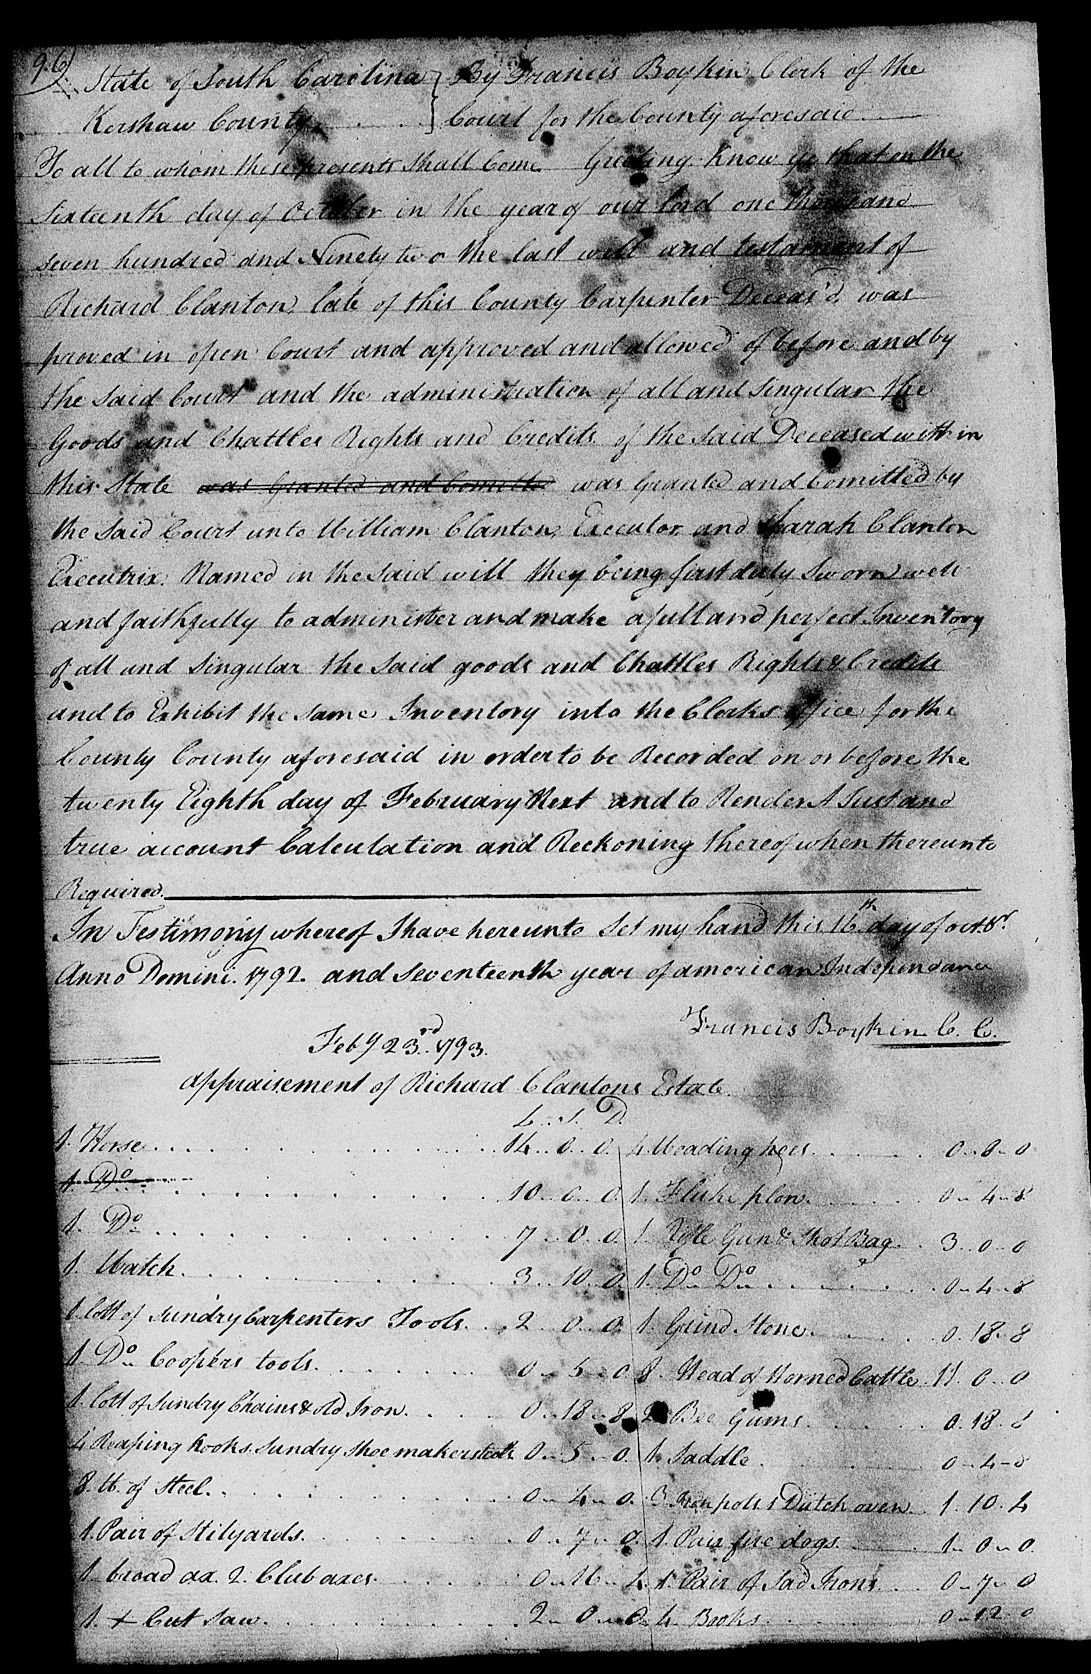 96
State of South Carolina } By Francis Boykin Clerk of the
Kershaw County } Court for the County aforesaid
To all to whom these presents shall Come Greeting Know ye that on the
Sixteenth day of October in the year of our lord one thousand
seven hundred and Ninety two the last will and testament of
Richard Clanton, late of this County Carpenter Deceas'd, was
proved in open Court and approved and allowed of before and by
the said Court and the administration of all and singular the
Goods and Chattles Rights and Credits of the said Deceased within
this State was Granted and Comitted was Granted and Comitted by
the said Court unto William Clanton, Executor, and Sarah Clanton
Executrix, Named in the said will they being first duly Sworn well
and faithfully to administer and make a full and perfect Inventory
of all and singular the said goods and Chattles Rights & Credits
and to Exhibit the same Inventory into the Clerks office for the
County County aforesaid in order to be Recorded on or before the
twenty Eighth day of February Next and to Render A Just and
true account Calculation and Reckoning thereof when thereunto
Required
In Testimony whereof I have hereunto Set my hand this 16th day of octobr.
Anno Domini. 1792. and seventeenth year of american Independance
Francis Boykin C. C.
Feby 23rd. 1793.
appraisement of Richard Clantons Estate
L .. S. D.
1. Horse 14 .. 0 .. 0
1. Do 10 .. 0 .. 0
1. Do 7 .. 0 .. 0
1. Watch 3 .. 10 .. 0
1. Lott of Sundry Carpenters Tools 2 .. 0 .. 0
1. Do Coopers tools 0 .. 5 .. 0
1. Lott of Sundry Chains & old Iron 0 .. 18 .. 8
4 Reaping hooks Sundry Shoe makers tools 0 .. 5 .. 0
8. lb. of Steel 0 .. 4 .. 0
1. Pair of Stilyards 0 .. 7 .. 0
1 broad ax. 2. Club axes 0 .. 16 .. 4
1. + Cut Saw 2 .. 0 .. 0
4 Weading hoes 0 .. 8 .. 0
1. Fluke plow 0 .. 4 .. 8
1 Rifle Gun & Shot Bag 3 .. 0 .. 0
1. Do Do 0 .. 4 .. 8
1. Grind Stone 0 .. 18 .. 8
8. Head of Horned Cattle 11 .. 0 .. 0
2 Bee Gums 0 .. 18 .. 8
1. Saddle 0 .. 4 .. 8
3 Iron potts 1 Dutch oven 1 .. 10 .. 4
1 Pair fire dogs 1 .. 0 .. 0
1 Pair of Sad Irons 0 .. 7 .. 0
4 Books 0 .. 12 .. 0